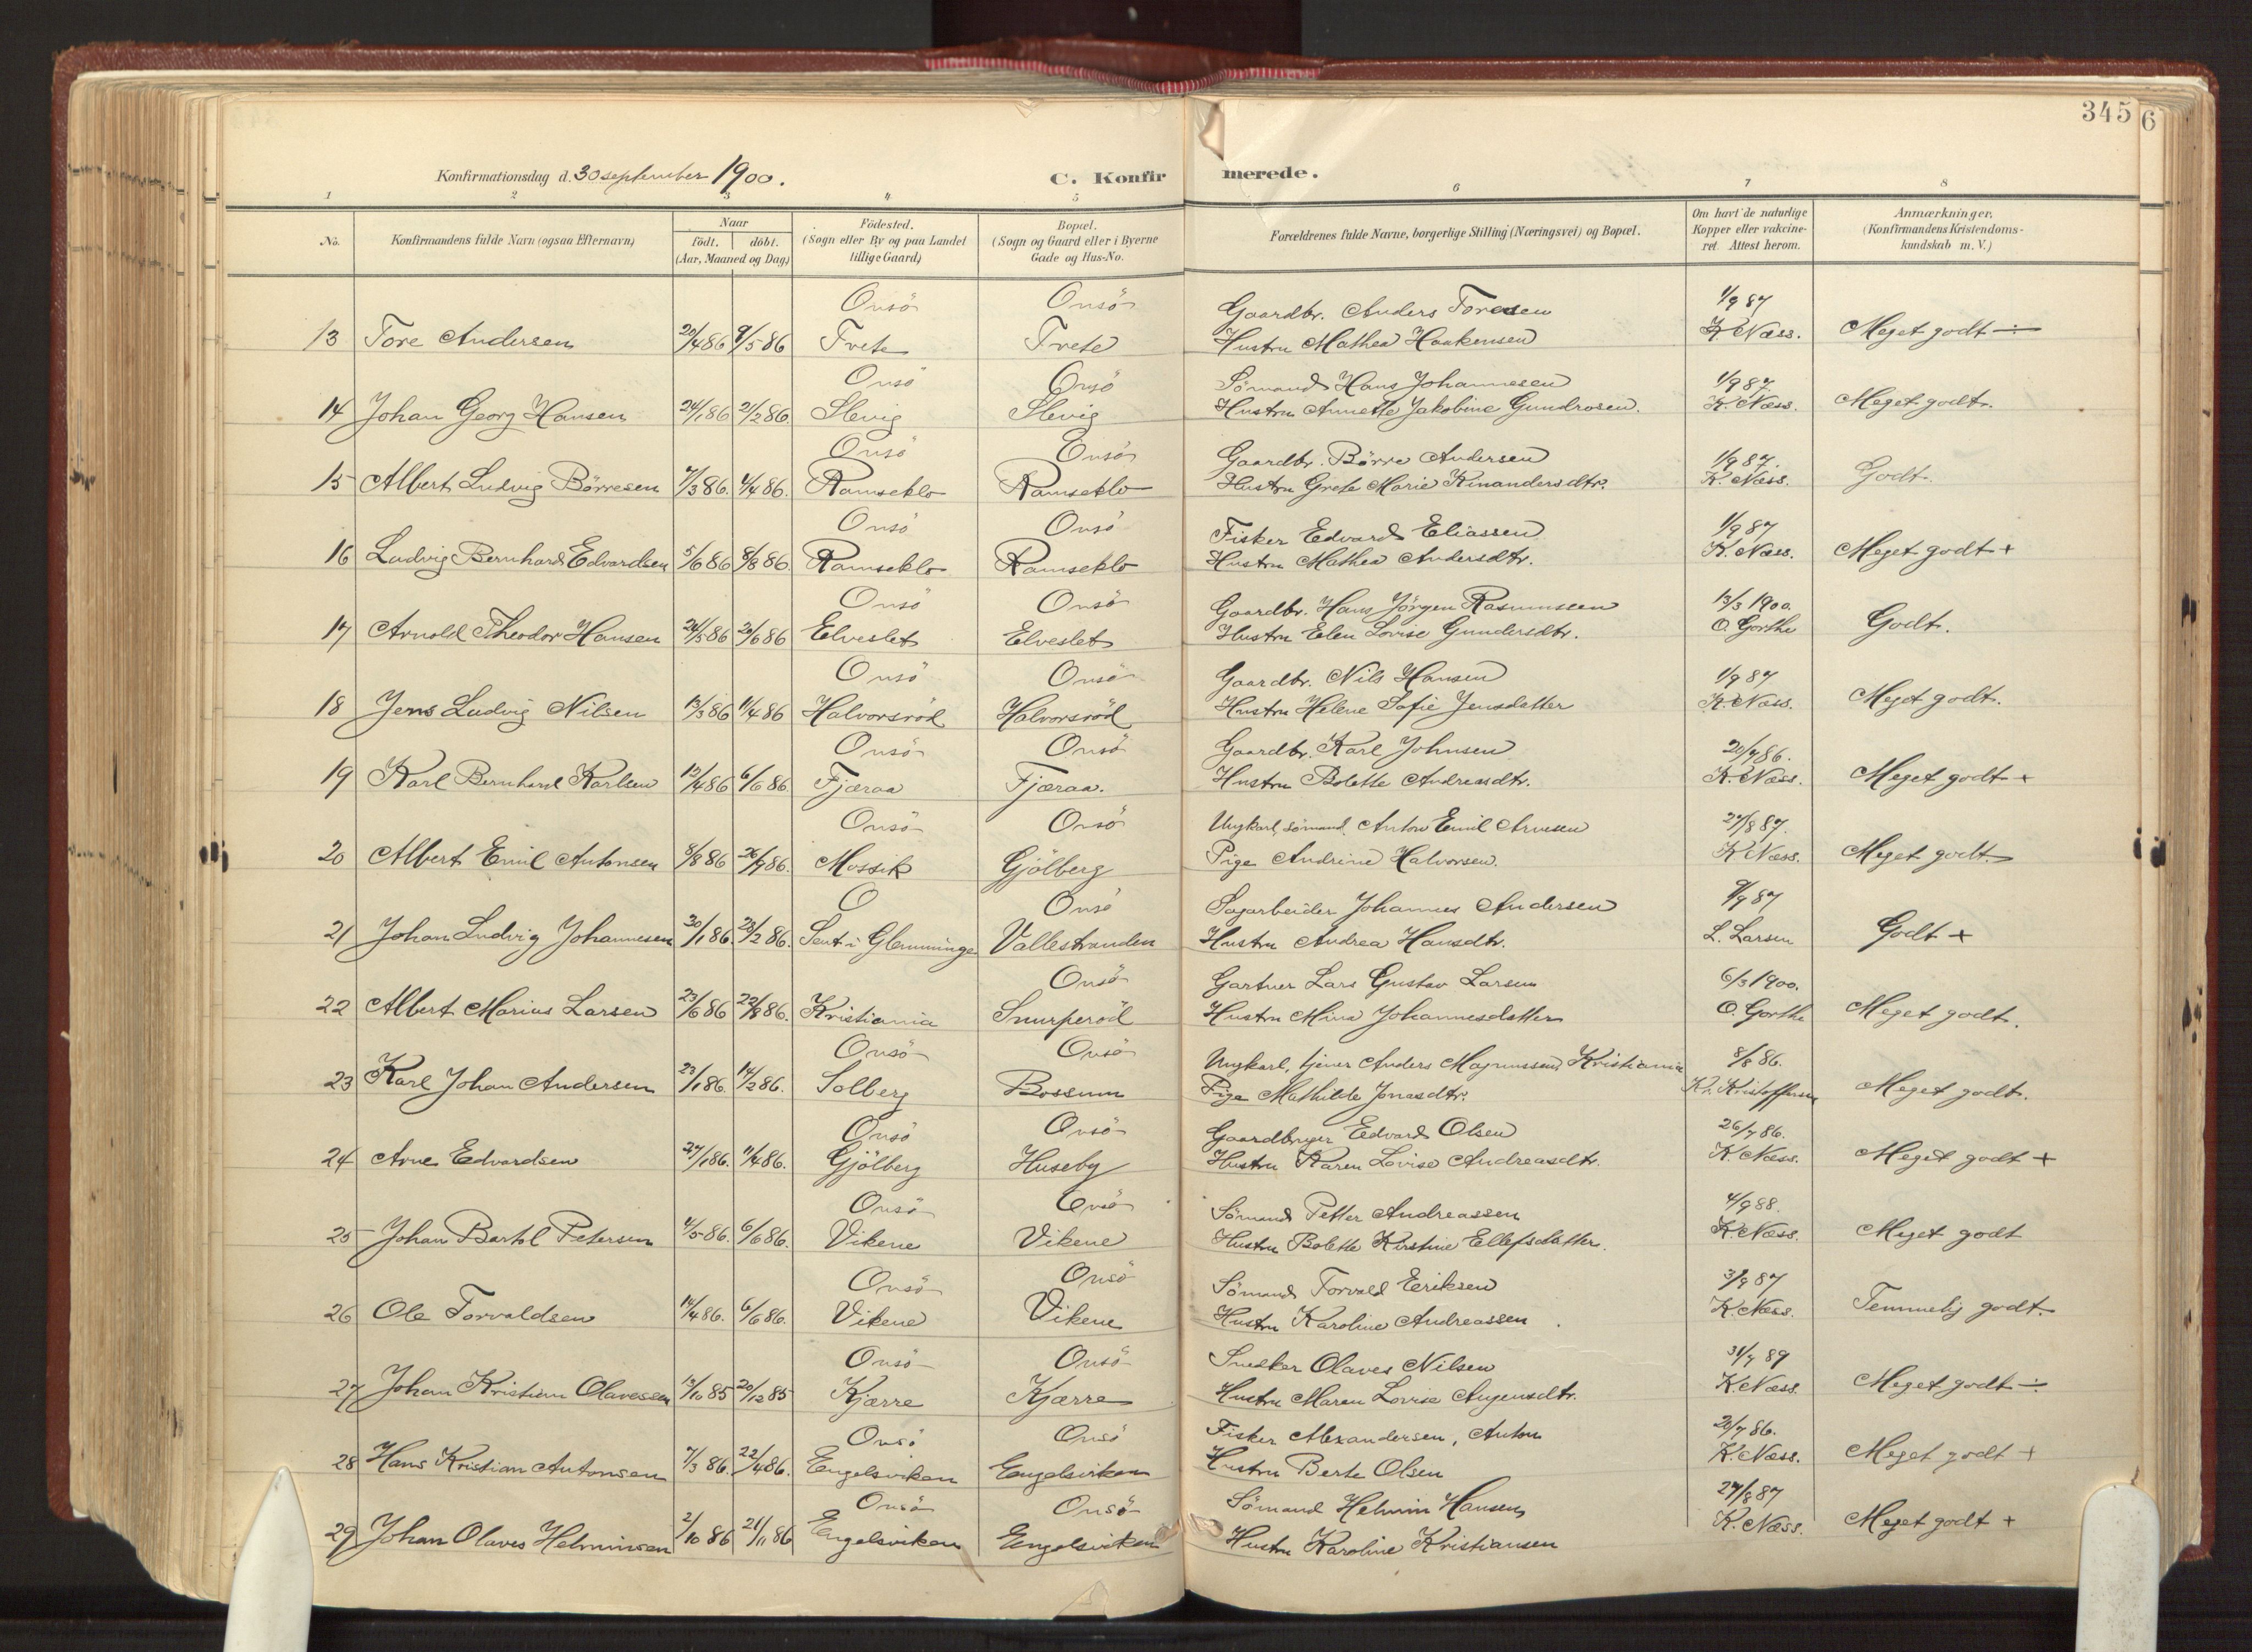 345
6
Konfirmationsdag d. 30 september 1900.
C. Konfirmerede.
1 2 3 4 5 6 7 8
No. Konfirmandens fulde Navn (ogsaa Efternavn) Naar födt. döbt. (Aar, Maaned og Dag) Födested. (Sogn eller By og paa Landet tillige Gaard) Bopæl. (Sogn og Gaard eller i Byerne Gade og Hus-No. Forældrenes fulde Navne, borgerlige Stilling (Næringsvei) og Bopæl. Om havt de naturlige Kopper eller vakcineret. Attest herom. Anmærkninger. (Konfirmandens Kristendomskundskab m. V.)
Onsö Onsö Gaardbr. Anders Toresen 1/9 87
13 Tore Andersen 20/4 86 9/5 86 Trete Trete Hustru Mathea Haakensen K. Næss. Meget godt ÷
Onsö Onsö Sömand Hans Johannesen 1/9 87
14 Johan Georg Hansen 24/1 86 21/2 86. Slevig Slevig Hustru Annette Jakobine Gundrosen. K. Næss. Meget godt.
Onsö Onsö Gaardbr. Börre Andersen 1/9 87.
15 Albert Ludvig Börresen 7/3 86. 4/4 86. Ramseklo Ramseklo Hustru Grete Marie Kinandersdtr. K. Næss. Godt.
Onsö Onsö Fisker Edvard Eliassen 1/9 87
16 Ludvig Bernhard Edvardsen 5/6 86 8/8 86 Ramseklo Ramseklo Hustru Mathea Andersdtr. K. Næss. Meget godt +
Onsö Onsö Gaardbr. Hans Jörgen Rasmussen 13/3 1900.
17 Arnold Theodor Hansen 24/5 86 20/6 86 Elveslet Elveslet Hustru Elen Lovise Gundersdtr. O. Gorthe Godt.
Onsö Onsö Gaardbr. Nils Hansen 1/9 87
18 Jens Ludvig Nilsen 13/3 86 11/4 86 Halvorsröd Halvorsröd Hustru Helene Sofie Jensdatter K. Næss. Meget godt.
Onsö Onsö Gaardbr. Karl Johnsen 20/7 86.
19 Karl Bernhard Karlsen 12/4 86 6/6 86 Fjæraa Fjæraa. Hustru Bolette Andreasdtr. K. Næss. Meget godt +
Onsö Onsö Ungkarl, sömand Anton Emil Arnesen 27/8 87.
20 Albert Emil Antonsen 8/8 86 26/9 86. Mossik Gjölberg Pige Andrine Halvorsen. K Næss. Meget godt
O Onsö Sagarbeider Johannes Andersen 9/9 87
21 Johan Ludvig Johannesen 30/1 86. 28/2 86. Seut i Glemminge Vallestranden Hustru Andrea Hansdtr. L. Larsen Godt +
Onsö Gartner Lars Gustav Larsen 6/3 1900.
22 Albert Marius Larsen 23/6 86 22/8 86. Kristiania Snurperöd Hustru Mina Johannesdatter O. Gorthe Meget godt.
Onsö Onsö Ungkarl, tjener Anders Magnussen, Kristiania 8/8 86.
23 Karl Johan Andersen 23/1 86. 14/2 86. Solberg Bossum Pige Mathilde Jonasdtr. Kr. Kristoffersen Meget godt.
Onsö Onsö Gaardbruger Edvard Olsen 26/7 86.
24 Arne Edvardsen 27/1 86. 11/4 86. Gjölberg Huseby Hustru Karen Lovise Andreasdtr. K. Næss. Meget godt +
Onsö Onsö Sömand Petter Andreassen 4/9 88.
25 Johan Bartol Petersen 4/5 86. 6/6 86. Vikene Vikene Hustru Bolette Kirstine Ellefsdatter. K. Næss. Meget godt
Onsö Onsö Sömand Torvald Eriksen 3/9 87
26 Ole Torvaldsen 14/4 86. 6/6 86. Vikene Vikene Hustru Karoline Andreassen K. Næss. Temmelig godt.
Onsö Onsö Snedker Olaves Nilsen 31/7 89
27 Johan Kristian Olavesen 13/10 85 20/12 85 Kjærre Kjærre Hustru Maren Lovise Augensdtr. K Næss. Meget godt ÷
Onsö Onsö Fisker Alexandersen, Anton 20/7 86.
28 Hans Kristian Antonsen 7/3 86. 22/4 86. Engelsviken Engelsviken Hustru Berte Olsen K. Næss. Meget godt +
Onsö Onsö Sömand Helmin Hansen 27/8 87
29 Johan Olaves Helminsen 2/10 86 21/11 86 Engelsviken Engelsviken Hustru Karoline Kristiansen K. Næss. Meget godt +